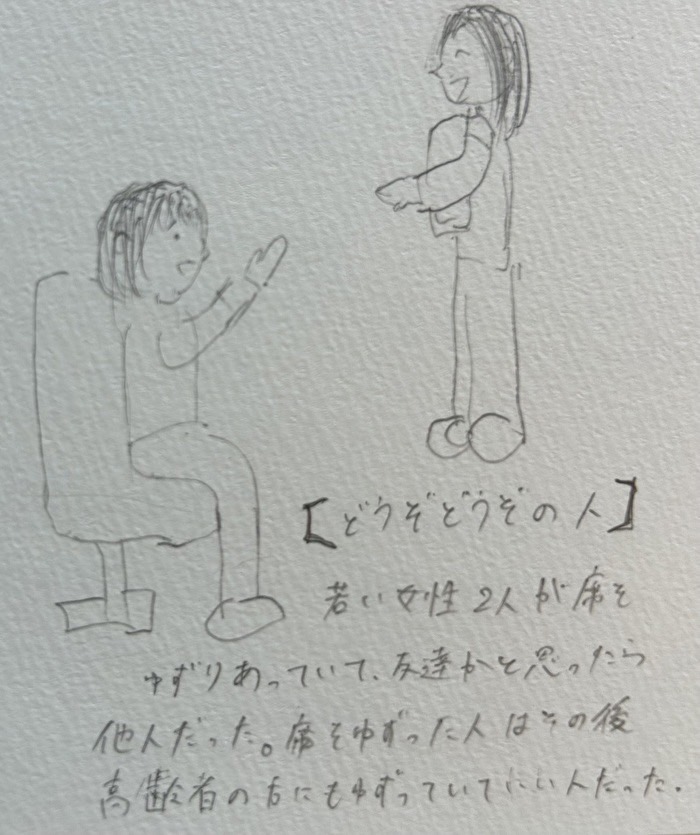 【どうぞどうぞの人】
若い女性2人が席を
ゆずりあっていて、友達かと思ったら
他人だった。席をゆずった人はその後
高齢者の方にもゆずっていていい人だった。